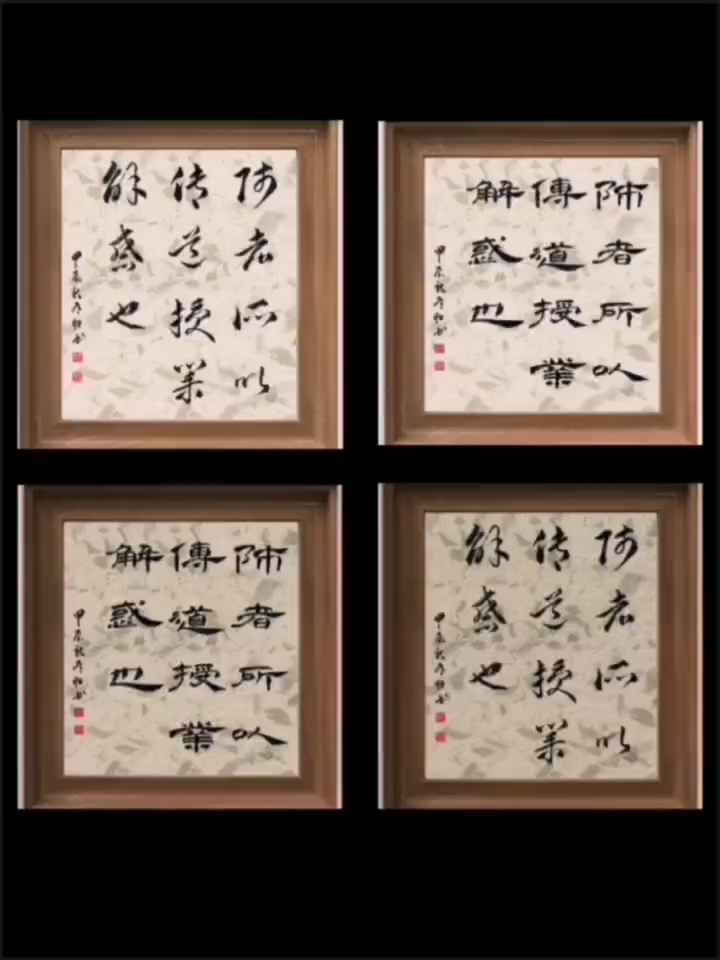 師者所以
传道授業
解惑也
甲辰秋
師者所以
傳道授業
解惑也
甲辰秋
師者所以
傳道授業
解惑也
甲辰秋
師者所以
传道授業
解惑也
甲辰秋